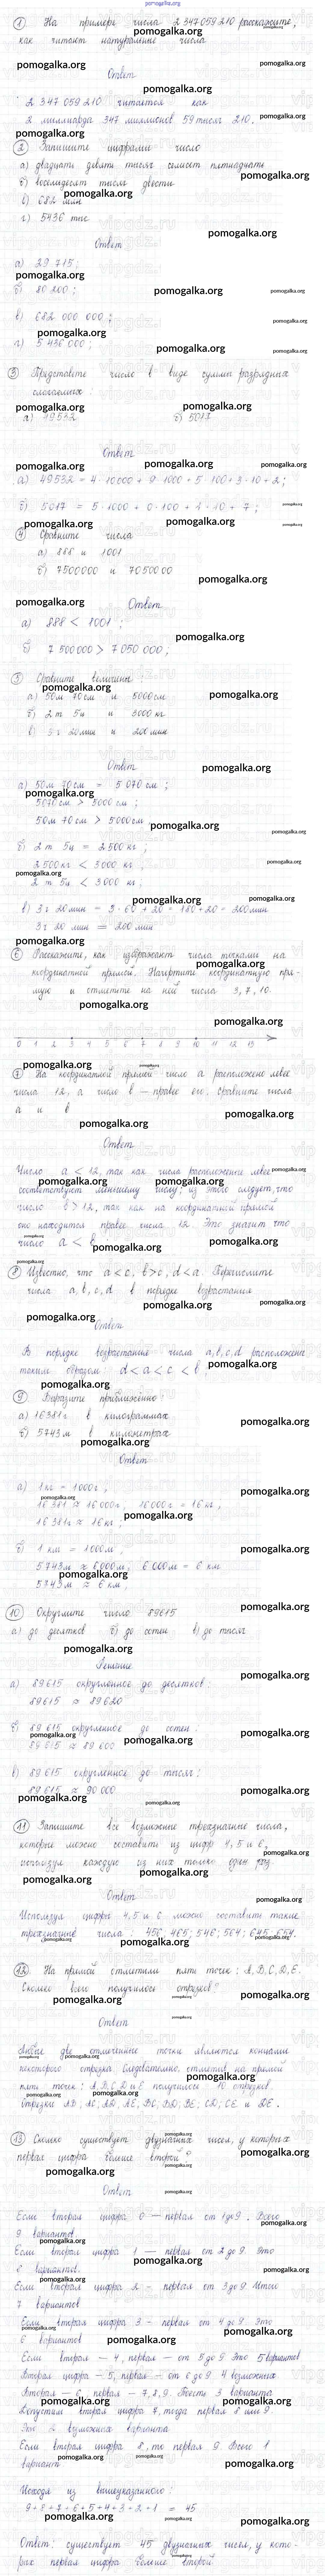 pomogalka.org
① На примере числа 2 347 059 210 расскажите,
как читают натуральные числа
Ответ
2 347 059 210 читается как
2 миллиарда 347 миллионов 59 тысяч 210.
② Запишите цифрами число
а) двадцать девять тысяч семьсот пятнадцать
б) восемьдесят тысяч двести
в) 682 млн
г) 5436 тыс
Ответ
а) 29 715;
б) 80 200;
в) 682 000 000;
г) 5 436 000;
③ Представьте число в виде суммы разрядных
слагаемых:
а) 49532 б) 5017
Ответ
а) 49532 = 4·10000 + 9·1000 + 5·100 + 3·10 + 2;
б) 5017 = 5·1000 + 0·100 + 1·10 + 7;
④ Сравните числа
а) 888 и 1001
б) 7500000 и 7050000
Ответ
а) 888 < 1001;
б) 7 500 000 > 7 050 000;
⑤ Сравните величины:
а) 50м 70см и 5000см
б) 2 т 5ц и 3000 кг
в) 3 ч 20 мин и 200 мин
Ответ
а) 50м 70см = 5 070 см;
5070 см > 5000 см;
50м 70 см > 5000 см
б) 2 т 5ц = 2 500 кг;
2 500 кг < 3 000 кг;
2 т 5ц < 3 000 кг;
в) 3 ч 20 мин = 3·60 + 20 = 180 + 20 = 200 мин
3 ч 20 мин = 200 мин
⑥ Расскажите, как изображают числа точками на
координатной прямой. Начертите координатную пря-
мую и отметьте на ней числа 3, 7, 10.
0 1 2 3 4 5 6 7 8 9 10 11 12 13
⑦ На координатной прямой число а расположено левее
числа 12, а число в — правее его. Сравните числа
а и в
Ответ
Число а < 12, так как числа расположенные левее
соответствуют меньшему числу; из этого следует, что
число в > 12, так как на координатной прямой
оно находится правее числа 12. Это значит что
число а < в
⑧ Известно, что а < с, в > с, d < а. Перечислите
числа а, в, с, d в порядке возрастания
Ответ
В порядке возрастания числа а, в, с, d расположены
таким образом: d < а < с < в
⑨ Выразите приближённо:
а) 16381г в килограммах
б) 5743м в километрах
Ответ
а) 1кг = 1000г,
16 381 ≈ 16 000г, 16 000г = 16 кг,
16 381г ≈ 16 кг,
б) 1 км = 1000м,
5743м ≈ 6 000м, 6 000м = 6 км
5743м ≈ 6 км
⑩ Округлите число 89615
а) до десятков б) до сотен в) до тысяч
Решение
а) 89615 округленное до десятков:
89615 ≈ 89620
б) 89 615 округленное до сотен:
89 615 ≈ 89 600
в) 89615 округленное до тысяч:
89615 ≈ 90 000
⑪ Запишите все возможные трехзначные числа,
которые можно составить из цифр 4, 5 и 6,
используя каждую из них только один раз.
Ответ
Используя цифры 4, 5 и 6 можно составить такие
трехзначные числа 456; 465; 546; 564; 645; 654.
⑫ На прямой отметили пять точек: А, В, С, D, Е.
Сколько всего получилось отрезков?
Ответ
Любые две отмеченные точки являются концами
некоторого отрезка. Следовательно, отметив на прямой
пять точек: А, В, С, D и Е получилось 10 отрезков.
Отрезки АВ; АС; АD; АЕ; ВС; ВD; ВЕ; СD; СЕ и DЕ.
⑬ Сколько существует двузначных чисел, у которых
первая цифра больше второй?
Ответ
Если вторая цифра 0 — первая от 1 до 9. Всего
9 вариантов
Если вторая цифра 1 — первая от 2 до 9. Это
8 вариантов.
Если вторая цифра 2 - первая от 3 до 9. Итого
7 вариантов
Если вторая цифра 3 - первая от 4 до 9. Это
6 вариантов
Если вторая — 4, первая — от 5 до 9 Это 5 вариантов
Вторая цифра — 5, первая — от 6 до 9 4 возможных.
Вторая — 6, первая — 7, 8, 9. То есть 3 варианта
Допустим вторая цифра 7, тогда первая 8 или 9
Это 2 возможных варианта
Если вторая цифра 8, то первая 9. Всего 1
вариант
Исходя из вышеуказанного:
9 + 8 + 7 + 6 + 5 + 4 + 3 + 2 + 1 = 45
Ответ: существует 45 двузначных чисел, у кото-
рых первая цифра больше второй